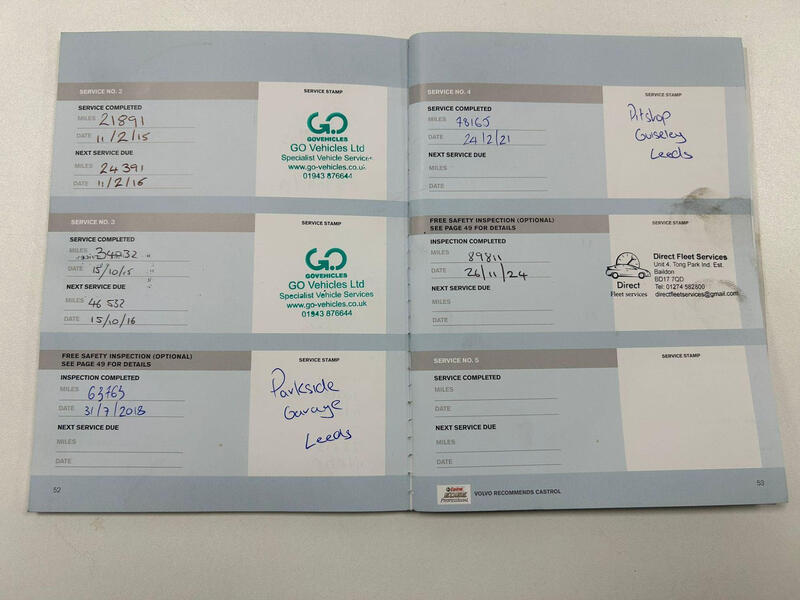 SERVICE NO. 2
SERVICE STAMP
SERVICE COMPLETED
MILES 21891
DATE 11/2/15
NEXT SERVICE DUE
MILES 24391
DATE 11/2/16
GO
GOVEHICLES
GO Vehicles Ltd
Specialist Vehicle Services
www.go-vehicles.co.uk
01943 876644
SERVICE NO. 3
SERVICE STAMP
SERVICE COMPLETED
MILES 34032
DATE 15/10/15
NEXT SERVICE DUE
MILES 46532
DATE 15/10/16
GO
GOVEHICLES
GO Vehicles Ltd
Specialist Vehicle Services
www.go-vehicles.co.uk
01943 876644
FREE SAFETY INSPECTION (OPTIONAL)
SEE PAGE 49 FOR DETAILS
SERVICE STAMP
INSPECTION COMPLETED
MILES 63763
DATE 31/7/2018
NEXT SERVICE DUE
MILES
DATE
Parkside
Garage
Leeds
52
SERVICE NO. 4
SERVICE STAMP
SERVICE COMPLETED
MILES 78165
DATE 24/2/21
NEXT SERVICE DUE
MILES
DATE
Pitshop
Guiseley
Leeds
FREE SAFETY INSPECTION (OPTIONAL)
SEE PAGE 49 FOR DETAILS
SERVICE STAMP
INSPECTION COMPLETED
MILES 89811
DATE 26/11/24
NEXT SERVICE DUE
MILES
DATE
Direct
Fleet services
Direct Fleet Services
Unit 4, Tong Park Ind. Est.
Baildon
BD17 7QD
Tel: 01274 582800
directfleetservices@gmail.com
SERVICE NO. 5
SERVICE STAMP
SERVICE COMPLETED
MILES
DATE
NEXT SERVICE DUE
MILES
DATE
Castrol
EDGE
Professional
VOLVO RECOMMENDS CASTROL
53